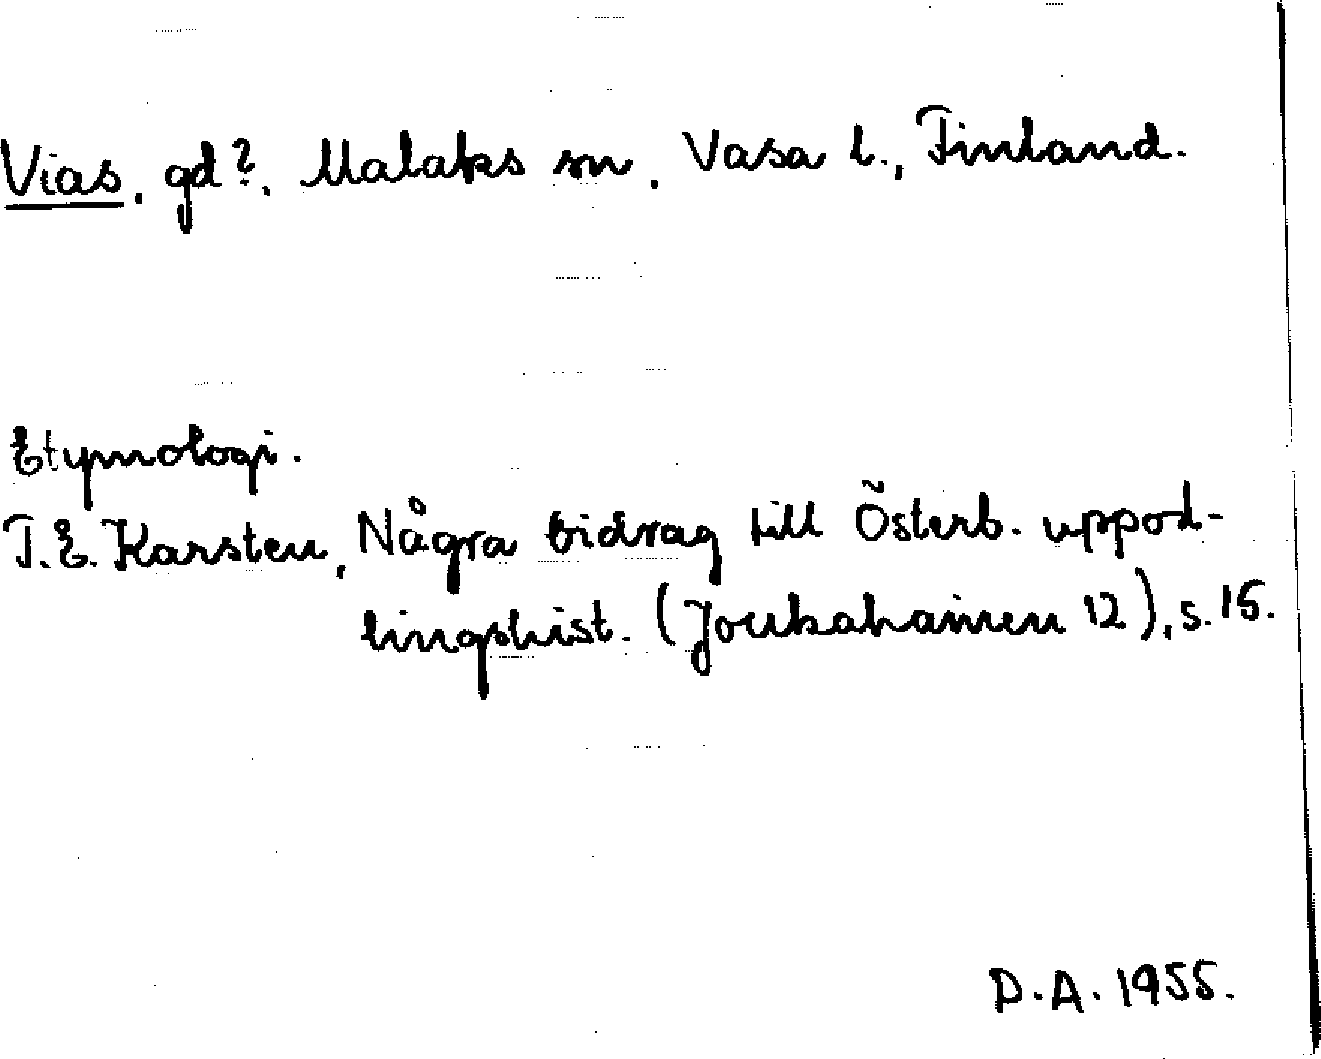 Vias, gd?, Malaks sn, Vasa l., Finland.
Etymologi.
T.E. Karsten, Några bidrag till Österb. uppod-
lingshist. (Joukahainen 12), s. 15.
D.A. 1955.